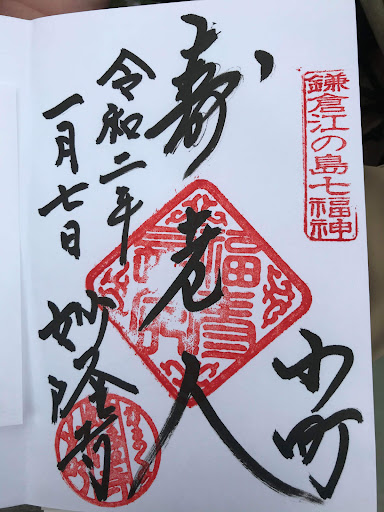 鎌倉江の島七福神
小町
寿老人
令和二年
一月七日
妙隆寺